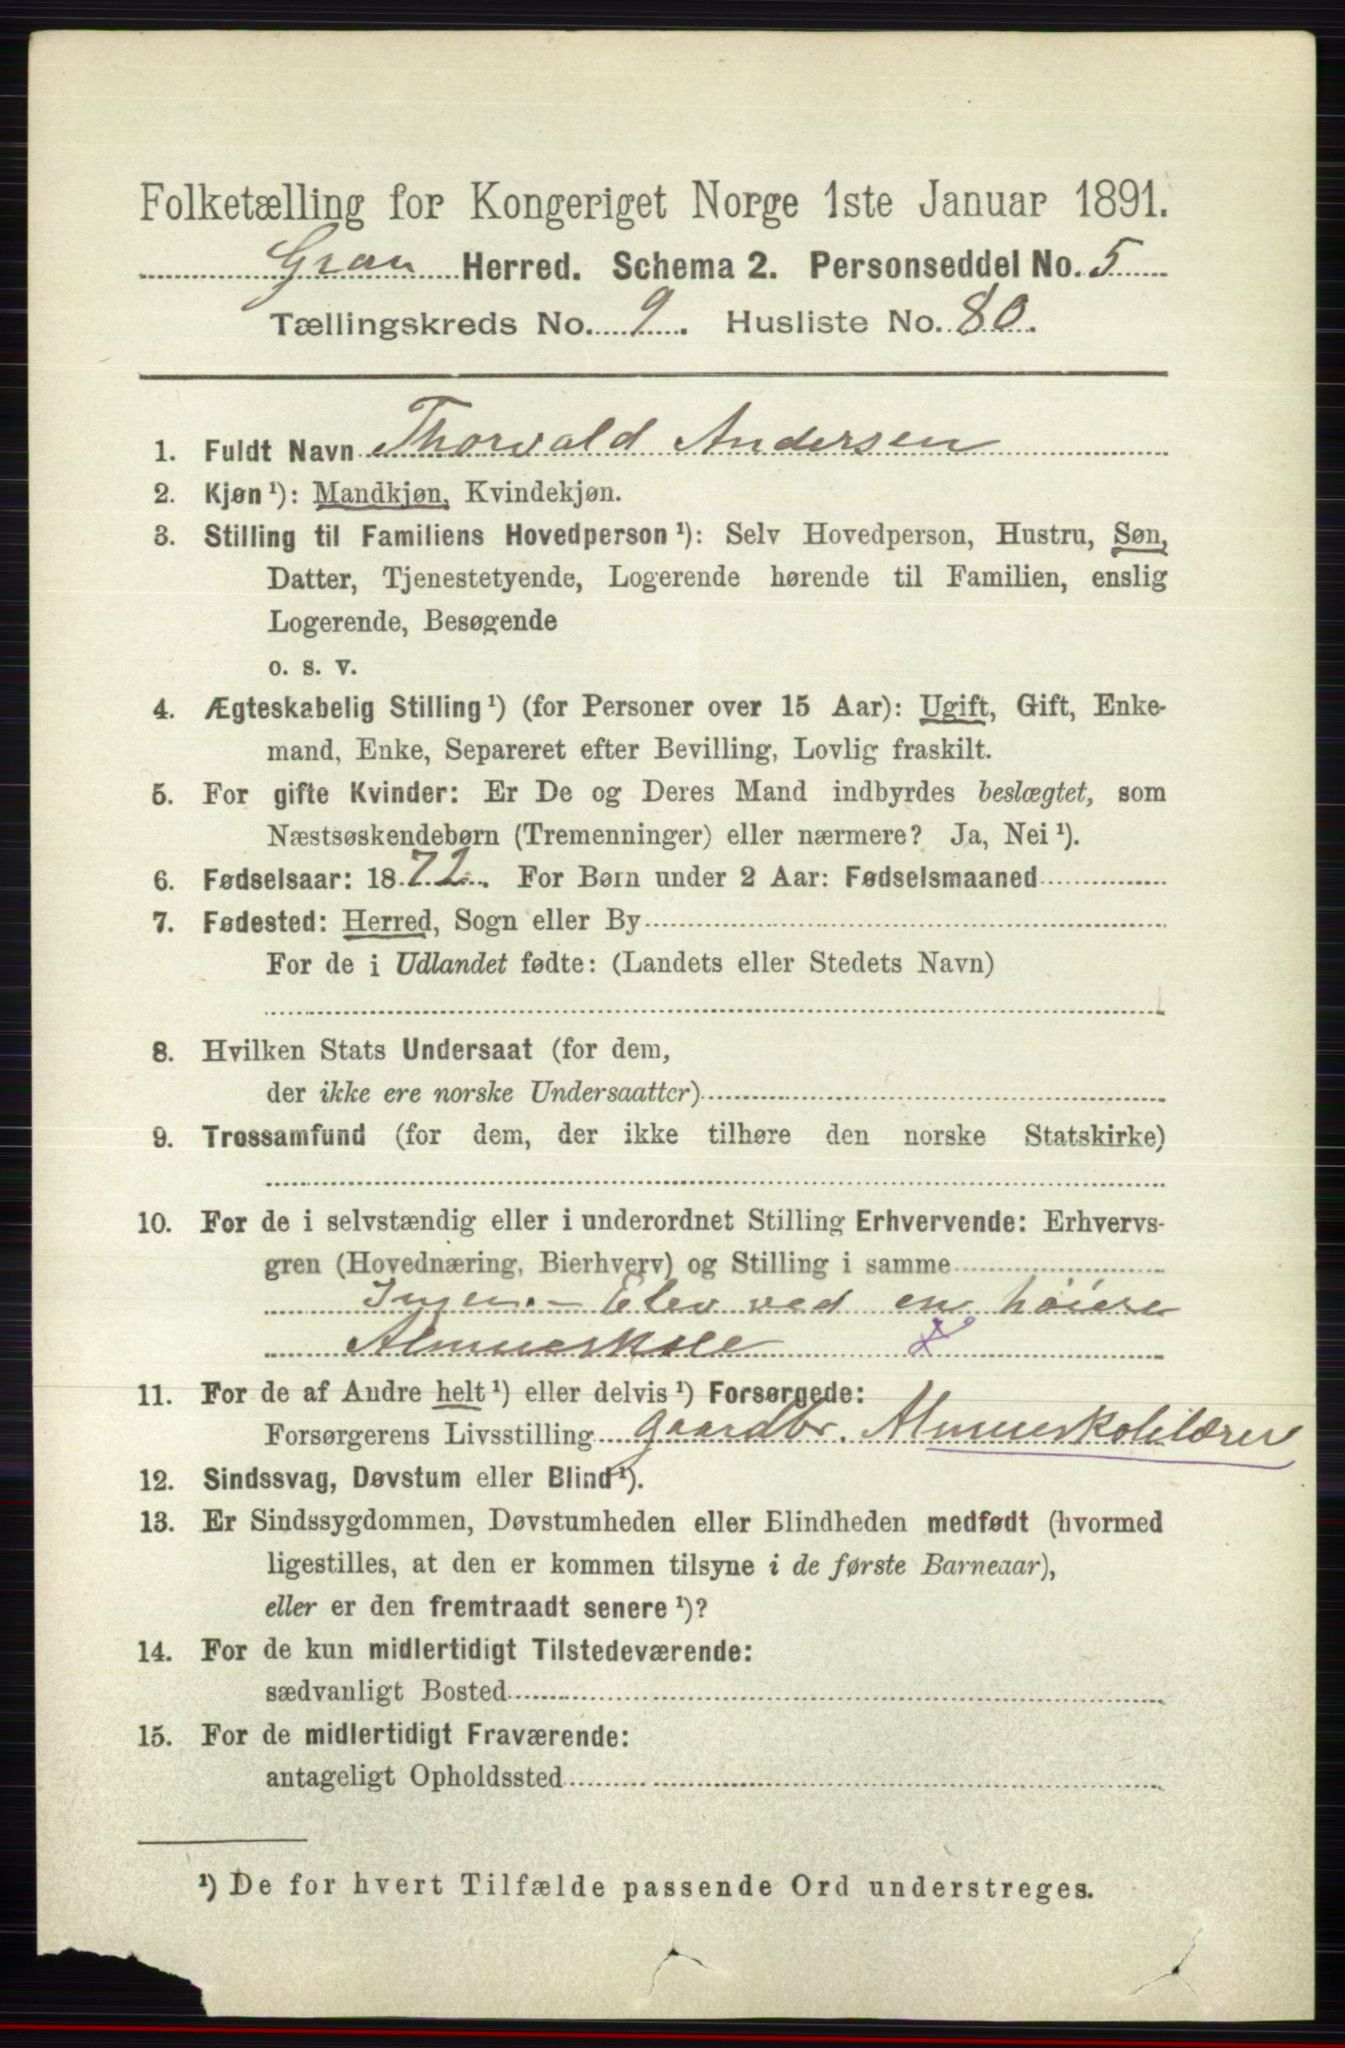 Folketælling for Kongeriget Norge 1ste Januar 1891.
Gran Herred. Schema 2. Personseddel No. 5
Tællingskreds No. 9. Husliste No. 80.
1. Fuldt Navn Thorvald Andersen
2. Kjøn ¹): Mandkjøn, Kvindekjøn.
3. Stilling til Familiens Hovedperson ¹): Selv Hovedperson, Hustru, Søn,
Datter, Tjenestetyende, Logerende hørende til Familien, enslig
Logerende, Besøgende
o. s. v.
4. Ægteskabelig Stilling ¹) (for Personer over 15 Aar): Ugift, Gift, Enke-
mand, Enke, Separeret efter Bevilling, Lovlig fraskilt.
5. For gifte Kvinder: Er De og Deres Mand indbyrdes beslægtet, som
Næstsøskendebørn (Tremenninger) eller nærmere? Ja, Nei ¹).
6. Fødselsaar: 1872. For Børn under 2 Aar: Fødselsmaaned
7. Fødested: Herred, Sogn eller By
For de i Udlandet fødte: (Landets eller Stedets Navn)
8. Hvilken Stats Undersaat (for dem,
der ikke ere norske Undersaatter)
9. Trossamfund (for dem, der ikke tilhøre den norske Statskirke)
10. For de i selvstændig eller i underordnet Stilling Erhvervende: Erhvervs-
gren (Hovednæring, Bierhverv) og Stilling i samme
Ingen. - Elev ved en høiere
Almueskole X
11. For de af Andre helt ¹) eller delvis ¹) Forsørgede:
Forsørgerens Livsstilling gaardbr. Almueskolelærer
12. Sindssvag, Døvstum eller Blind ¹).
13. Er Sindssygdommen, Døvstumheden eller Blindheden medfødt (hvormed
ligestilles, at den er kommen tilsyne i de første Barneaar),
eller er den fremtraadt senere ¹)?
14. For de kun midlertidigt Tilstedeværende:
sædvanligt Bosted
15. For de midlertidigt Fraværende:
antageligt Opholdssted
¹) De for hvert Tilfælde passende Ord understreges.